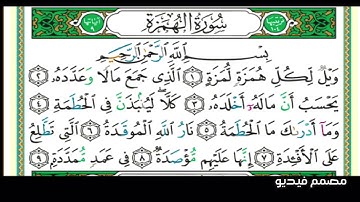 سُورَةُ الهُمَزَةِ
بِسْمِ اللَّهِ الرَّحْمَٰنِ الرَّحِيمِ
وَيْلٌ لِّكُلِّ هُمَزَةٍ لُّمَزَةٍ ١ الَّذِي جَمَعَ مَالًا وَعَدَّدَهُ ٢
يَحْسَبُ أَنَّ مَالَهُ أَخْلَدَهُ ٣ كَلَّا لَيُنبَذَنَّ فِي الْحُطَمَةِ ٤
وَمَا أَدْرَاكَ مَا الْحُطَمَةُ ٥ نَارُ اللَّهِ الْمُوقَدَةُ ٦ الَّتِي تَطَّلِعُ
عَلَى الْأَفْئِدَةِ ٧ إِنَّهَا عَلَيْهِم مُّؤْصَدَةٌ ٨ فِي عَمَدٍ مُّمَدَّدَةٍ ٩
مصمم فيديو